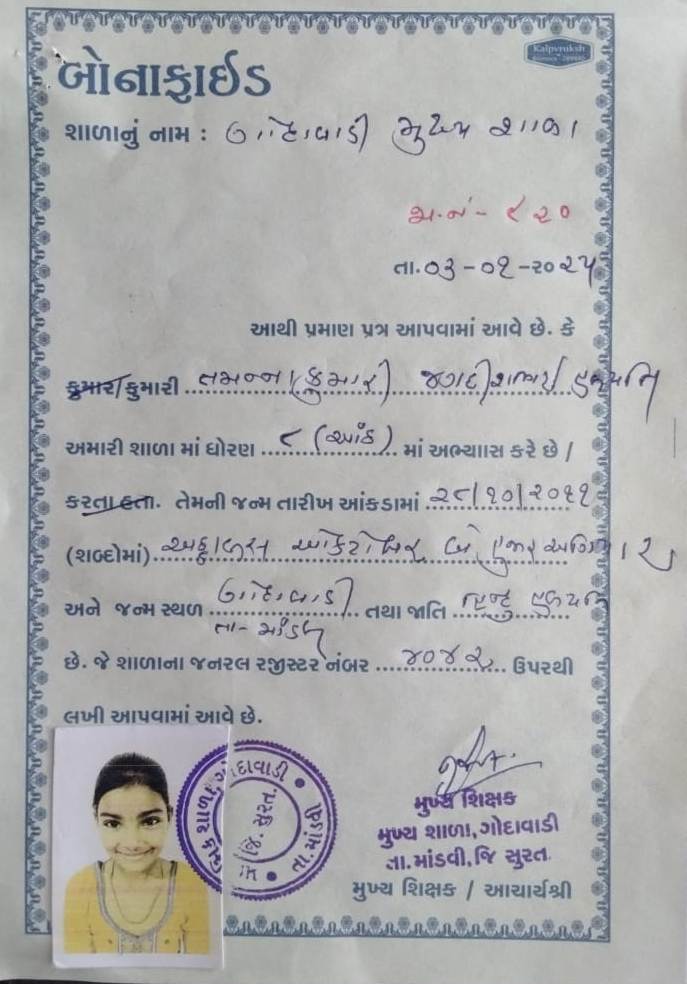 Kalpvruksh
બોનાફાઈડ
શાળાનું નામ : ગોદાવાડી મુખ્ય શાળા
જા.નં - ૯૨૦
તા.૦૩-૦૧-૨૦૨૫
આથી પ્રમાણ પત્ર આપવામાં આવે છે. કે
કુમાર/કુમારી તમન્ના(કુમારી) જગદીશભાઈ હળપતિ
અમારી શાળા માં ધોરણ ૮ (આઠ) માં અભ્યાસ કરે છે /
કરતા હતા. તેમની જન્મ તારીખ આંકડામાં ૨૮/૧૦/૨૦૧૧
(શબ્દોમાં) અઠ્ઠાવીસ ઓક્ટોબર બે હજાર અગિયાર
અને જન્મ સ્થળ ગોદાવાડી તથા જાતિ હિન્દુ હળપતિ
તા- માંડવી
છે. જે શાળાના જનરલ રજીસ્ટર નંબર ૪૦૪૨ ઉપરથી
લખી આપવામાં આવે છે.
શાળા, ગોદાવાડી
તા. માંડવી
જિ. સુરત.
મુખ્ય શિક્ષક
મુખ્ય શાળા, ગોદાવાડી
તા. માંડવી, જિ સુરત.
મુખ્ય શિક્ષક / આચાર્યશ્રી